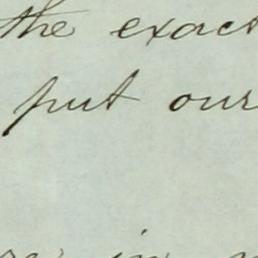 the exact
put our
in